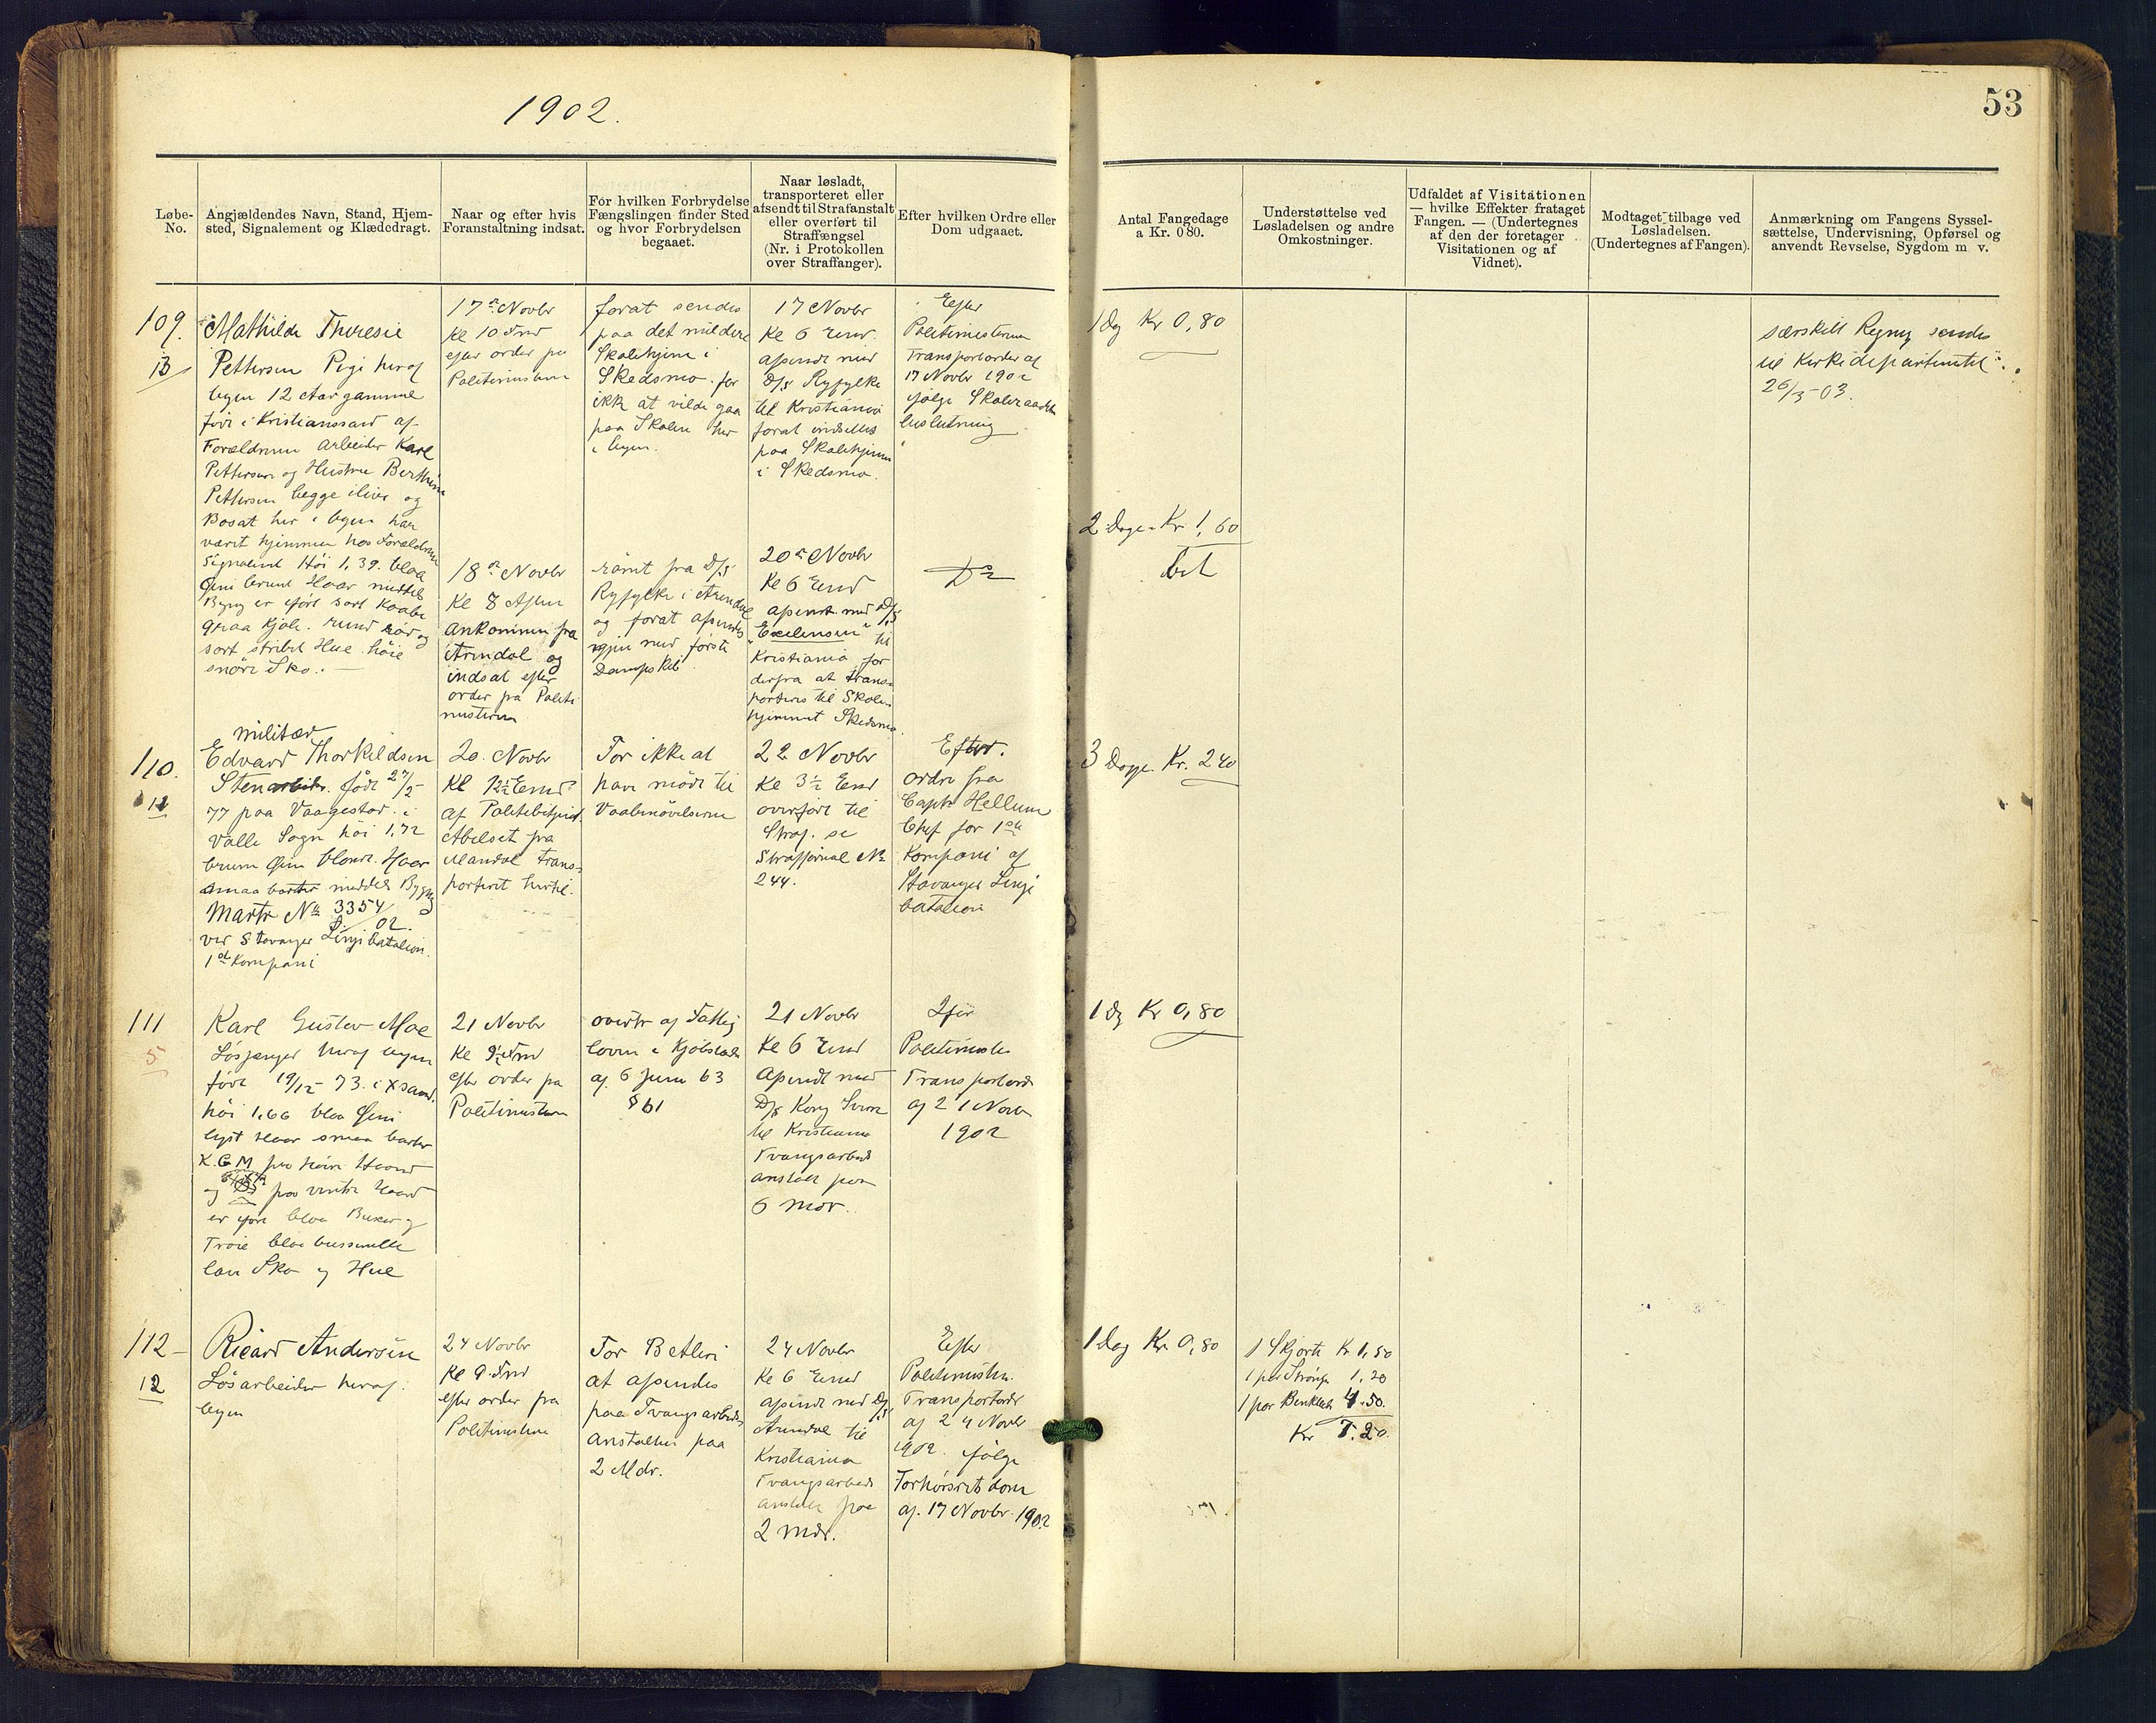 1902.
53
Løbe-
No.
Angjældendes Navn, Stand, Hjem-
sted, Signalement og Klædedragt.
Naar og efter hvis
Foranstaltning indsat.
For hvilken Forbrydelse
Fængslingen finder Sted
og hvor Forbrydelsen
begaaet.
Naar løsladt,
transporteret eller
afsendt til Strafanstalt
eller overført til
Straffængsel
(Nr. i Protokollen
over Straffanger).
Efter hvilken Ordre eller
Dom udgaaet.
Antal Fangedage
a Kr. 0 80.
Understøttelse ved
Løsladelsen og andre
Omkostninger.
Udfaldet af Visitationen
— hvilke Effekter frataget
Fangen. — (Undertegnes
af den der foretager
Visitationen og af
Vidnet).
Modtaget tilbage ved
Løsladelsen.
(Undertegnes af Fangen).
Anmærkning om Fangens Syssel-
sættelse, Undervisning, Opførsel og
anvendt Revselse, Sygdom m v.
109.
13
Mathilde Theresie
Pettersen Pige heraf
byen 12 Aar gammel
født i Kristianssand af
Forældrene Arbeider Karl
Pettersen og Hustru Berthine
Pettersen begge ilive og
Bosat her i byen har
været hjemme hos Forældrene
Signalent Høi 1,39. blaa
Øine brunt Haar middels
Bygn er iført sort Kaabe
graa Kjole. rund rød og
sort stribet Hue høie
snøre Sko.
17de Novbr
Kl 10 Fmd
efter order fra
Politimesteren
forat sendes
paa det mildere
Skolehjem i
Skedsmo. for
ikke at vilde gaa
paa Skolen her
i byen.
17 Novbr
Kl 6 Emd.
afsendt med
D/S Ryfylke
til Kristiania
forat indsættes
paa Skolehjemmet
i Skedsmo.
Efter
Politimesterens
Transportorder af
17 Novbr 1902
ifølge Skoleraadets
beslutning
1 Dg Kr 0,80
særskilt Regng sendes
til Kirkedepartemtet
26/3-03.
18de Novbr
Kl 8 Aften
Ankommen fra
Arendal og
indsat efter
order fra Politi
mesteren
rømt fra D/S
Ryfylke i Arendal
og forat afsendes
igjen med første
Dampskib
20de Novbr
Kl 6 Emd
afsent med D/S
"Exelensen" til
Kristiania for
derfra at trans-
porteres til Skole-
hjemmet Skedsmo.
Do
2 Dage - Kr 1,60
bet
110.
12
militær
Edvard Thorkildsen
Stenarbeider. født 27/5-
77 paa Vaagestad i
Valle Sogn høi 1,72
brune Øine blondt Haar
smaa barter middels Bygng
Martr No 3354/02.
ved Stavanger Linjebataljon.
1ste Kompani
20. Novbr
Kl 12½ Emd
af Politibetjent
Abelset fra
Mandal trans-
porteret hertil.
For ikke at
have mødt til
Vaabenøvelserne
22 Novbr
Kl 3½ Emd
overført til
Straf. se
Strafjornal No
244.
Efter.
ordre fra
Captn Hellum
Chef for 1ste
Kompani af
Stavanger Linje
batalion
3 Dage. Kr. 2 40
111
5
Karl Gustav Moe
Løsgænger heraf byen
født 19/12-73. i Xsand.
høi 1,66 blaa Øine
lyst Haar smaa barter
K.G M paa høire Haand
og paa venstre Haand
er iført blaa Buxer og
Trøie blaa busserulle
lave Sko og Hue
21 Novbr
Kl 9½ Fmd
efter order fra
Politimesteren
overtr af Fattig
loven i Kjøbstæd
af 6 Juni 63
§ 61
21 Novbr
Kl 6 Emd
Afsendt med
D/S Kong Sverre
til Kristiania
Tvangsarbeids
anstalt paa
6 mdr.
Ifør
Politimesters
Transportorder
af 21 Novbr
1902
1 Dg Kr 0,80
112
12
Ricard Andersen
Løsarbeider heraf.
byen
24 Novbr
Kl 9 Fmd
efter order fra
Politimesteren
For Betleri
at afsendes
paa Tvangsarbeids
anstalten paa
2 Mdr.
24 Novbr
Kl 6 Emd
afsendt med D/S
Arendal til
Kristiania
Tvangsarbeids
anstalt paa
2 mdr.
Efter
Politimestrn.
Transportordr
af 24 Novbr
1902. ifølge
Forhørsrets dom
af. 17 Novbr. 1902
1 Dag Kr. 0,80
1 Skjorte Kr 1,50
1 par Strømper 1,20
1 par Benklæder 4.50.
Kr 7.20.